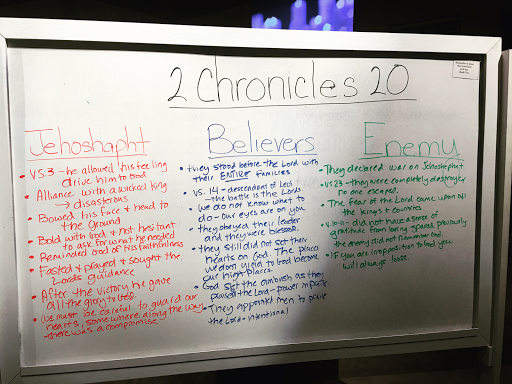 2 Chronicles 20
Jehoshapht
• VS. 3 - he allowed his feeling
drive him to God
• Alliance with a wicked king
→ disasterous
• Bowed his face & head to
the Ground
• Bold with God & not hesitant
to ask for what he needed
• Reminded God of His faithfulness
• Fasted & prayed & sought the
Lords guidance
• After the victory he gave
all the glory to God.
• (we must be careful to guard our
hearts, somewhere along the way
there was a compromise
Believers
• they stood before the Lord with
their ENTIRE families
• VS. 14 - descendant of Levi
- the battle is the Lords
• we do not know what to
do - our eyes are on you
• they obeyed their leader
and they were blessed.
• they still did not set their
hearts on God. The places
we don't give to God become
our high places.
• God set the ambush as they
praised the Lord - power in praise.
• They appointed men to praise
the Lord - intentional
Enemy
• They declared war on Jehoshaphat
• VS. 23 - they were completely destroyed
no one escaped.
• The fear of the Lord came upon all
the kings & countries
• v. 10-11 - did not have a sense of
gratitude from being spared previously
the enemy did not
• If you are in opposition to God you
will always loose.